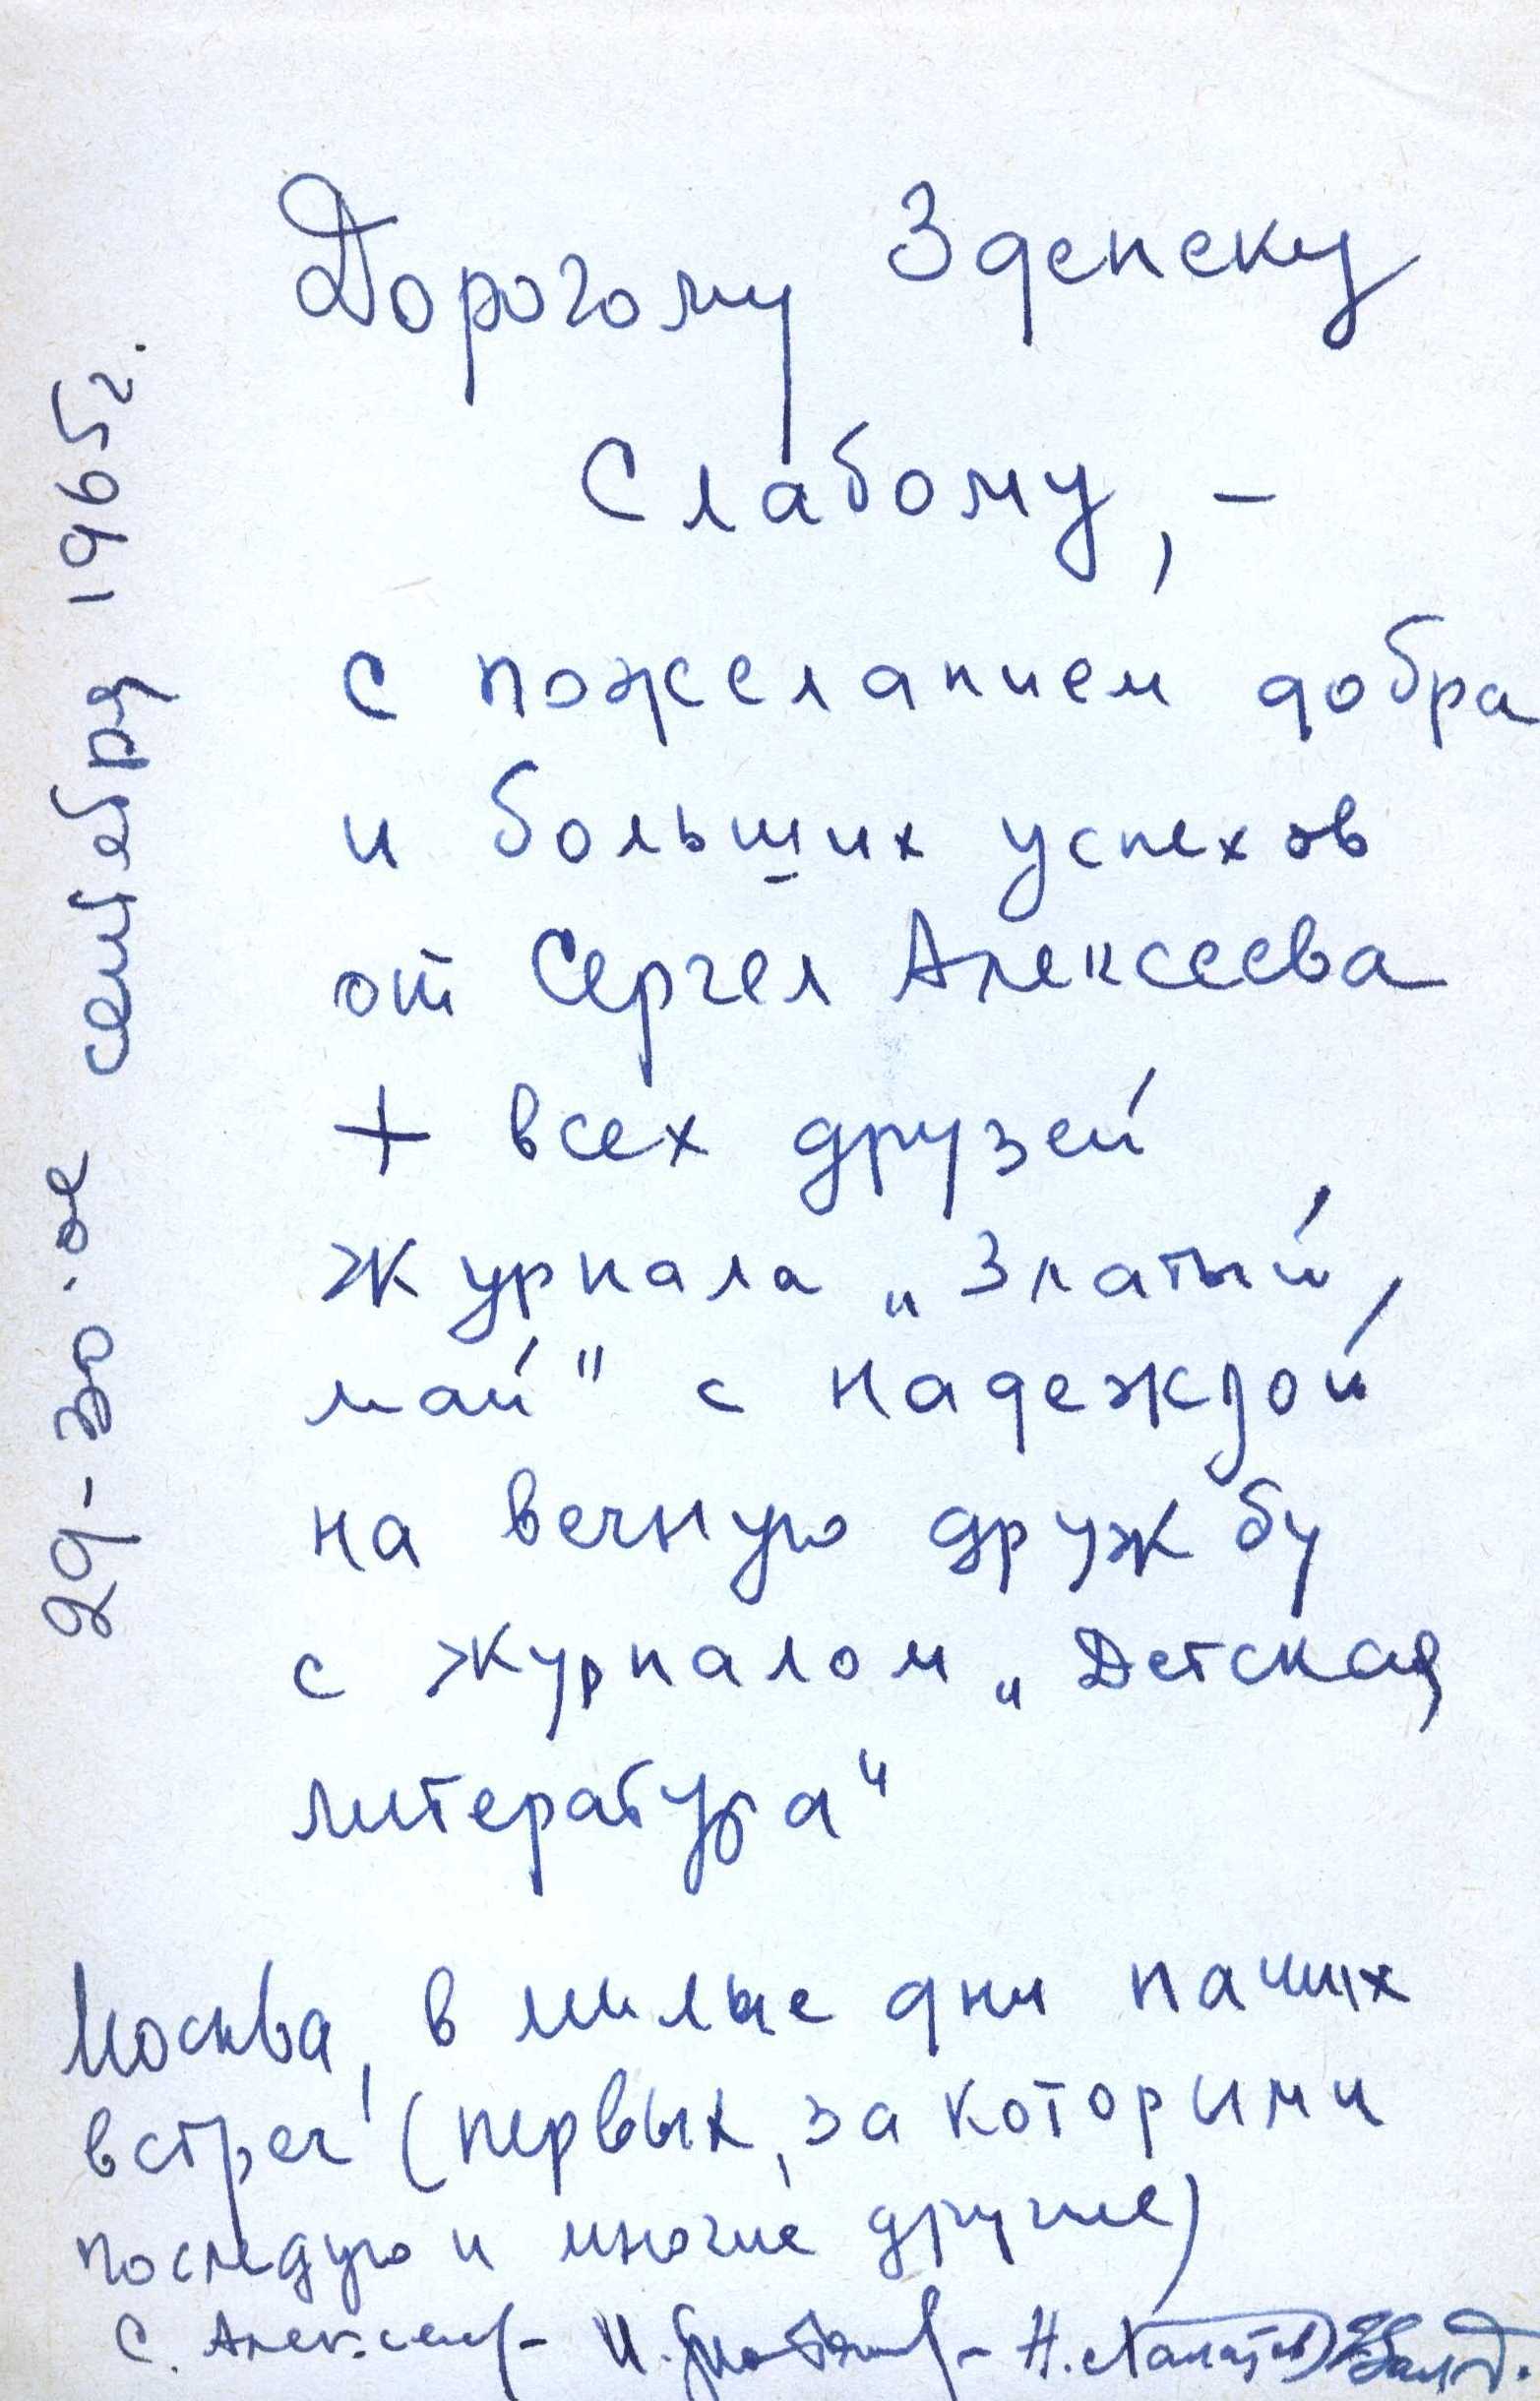 Дорогому Зденеку
Слабому, –
с пожеланием добра
и больших успехов
от Сергея Алексеева
+ всех друзей
журнала „Златый
май" с надеждой
на вечную дружбу
с журналом „Детская
литература"
Москва, в милые дни наших
встреч (первых, за которыми
последую и многие другие)
С. Алексеев – И. – Н.
29-30.ое сентября 1965г.